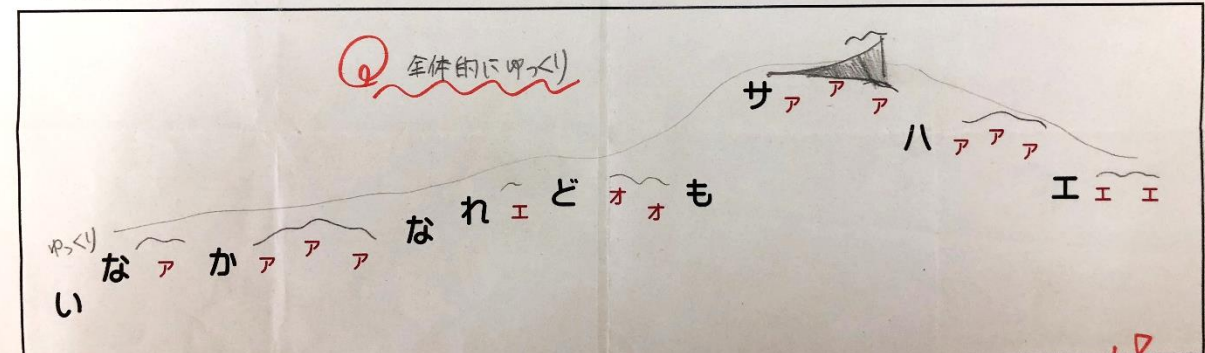 全体的にゆっくり
ゆっくり
いなァかァァァなれェどォォもサァァァハァァァエェェ